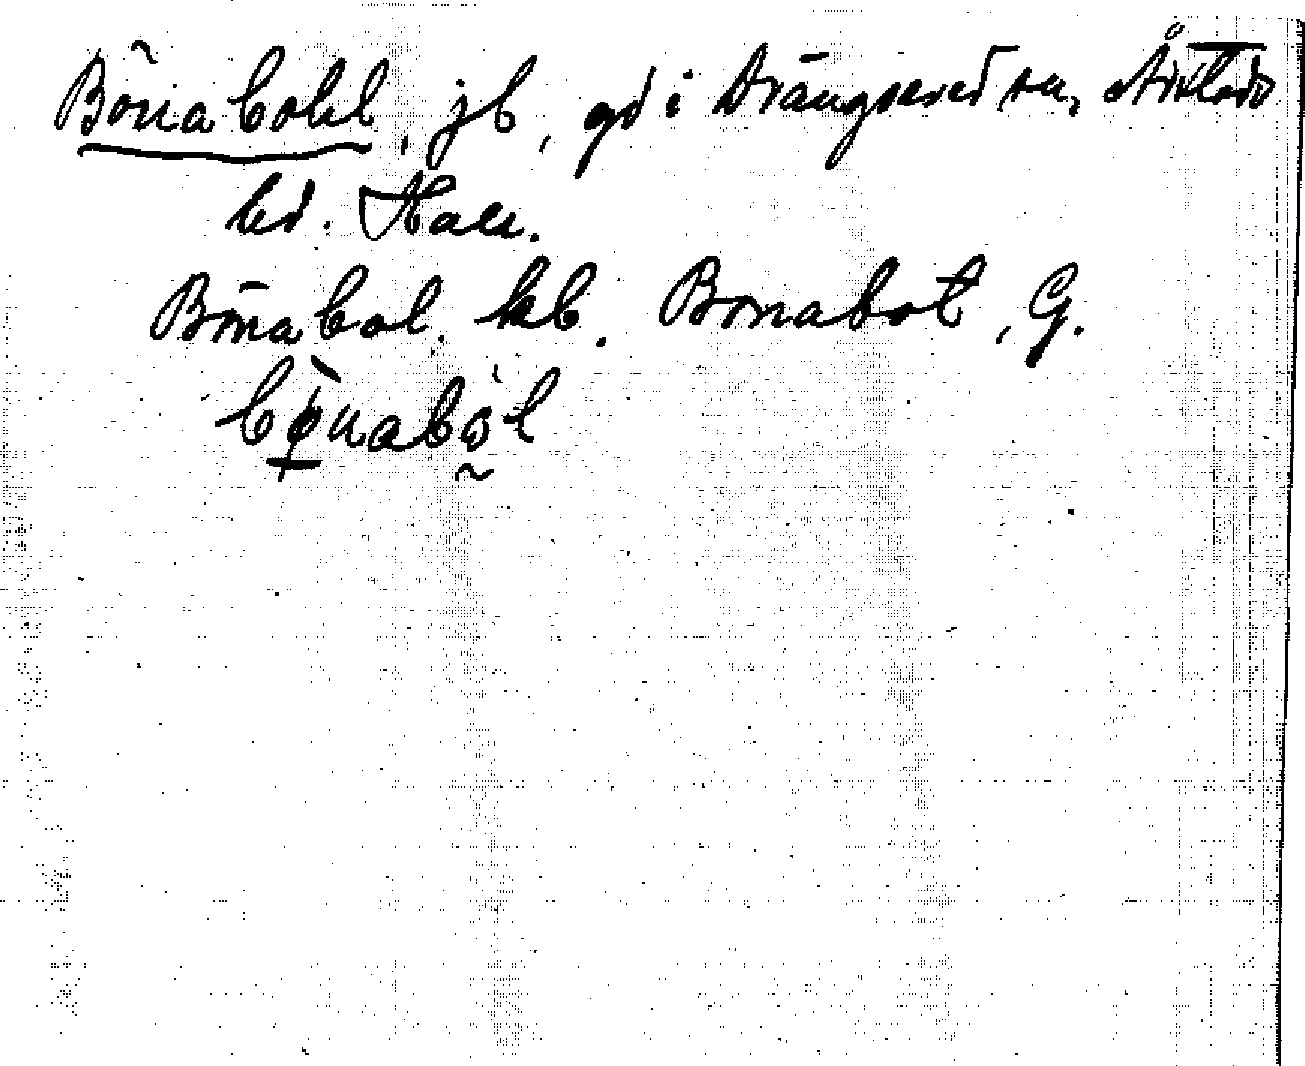 Bönabohl, jb, gd i Drängsered sn, Årstads
hd. Hall.
Bönabol. kb. Bonabot, G.
bø̀nabòl